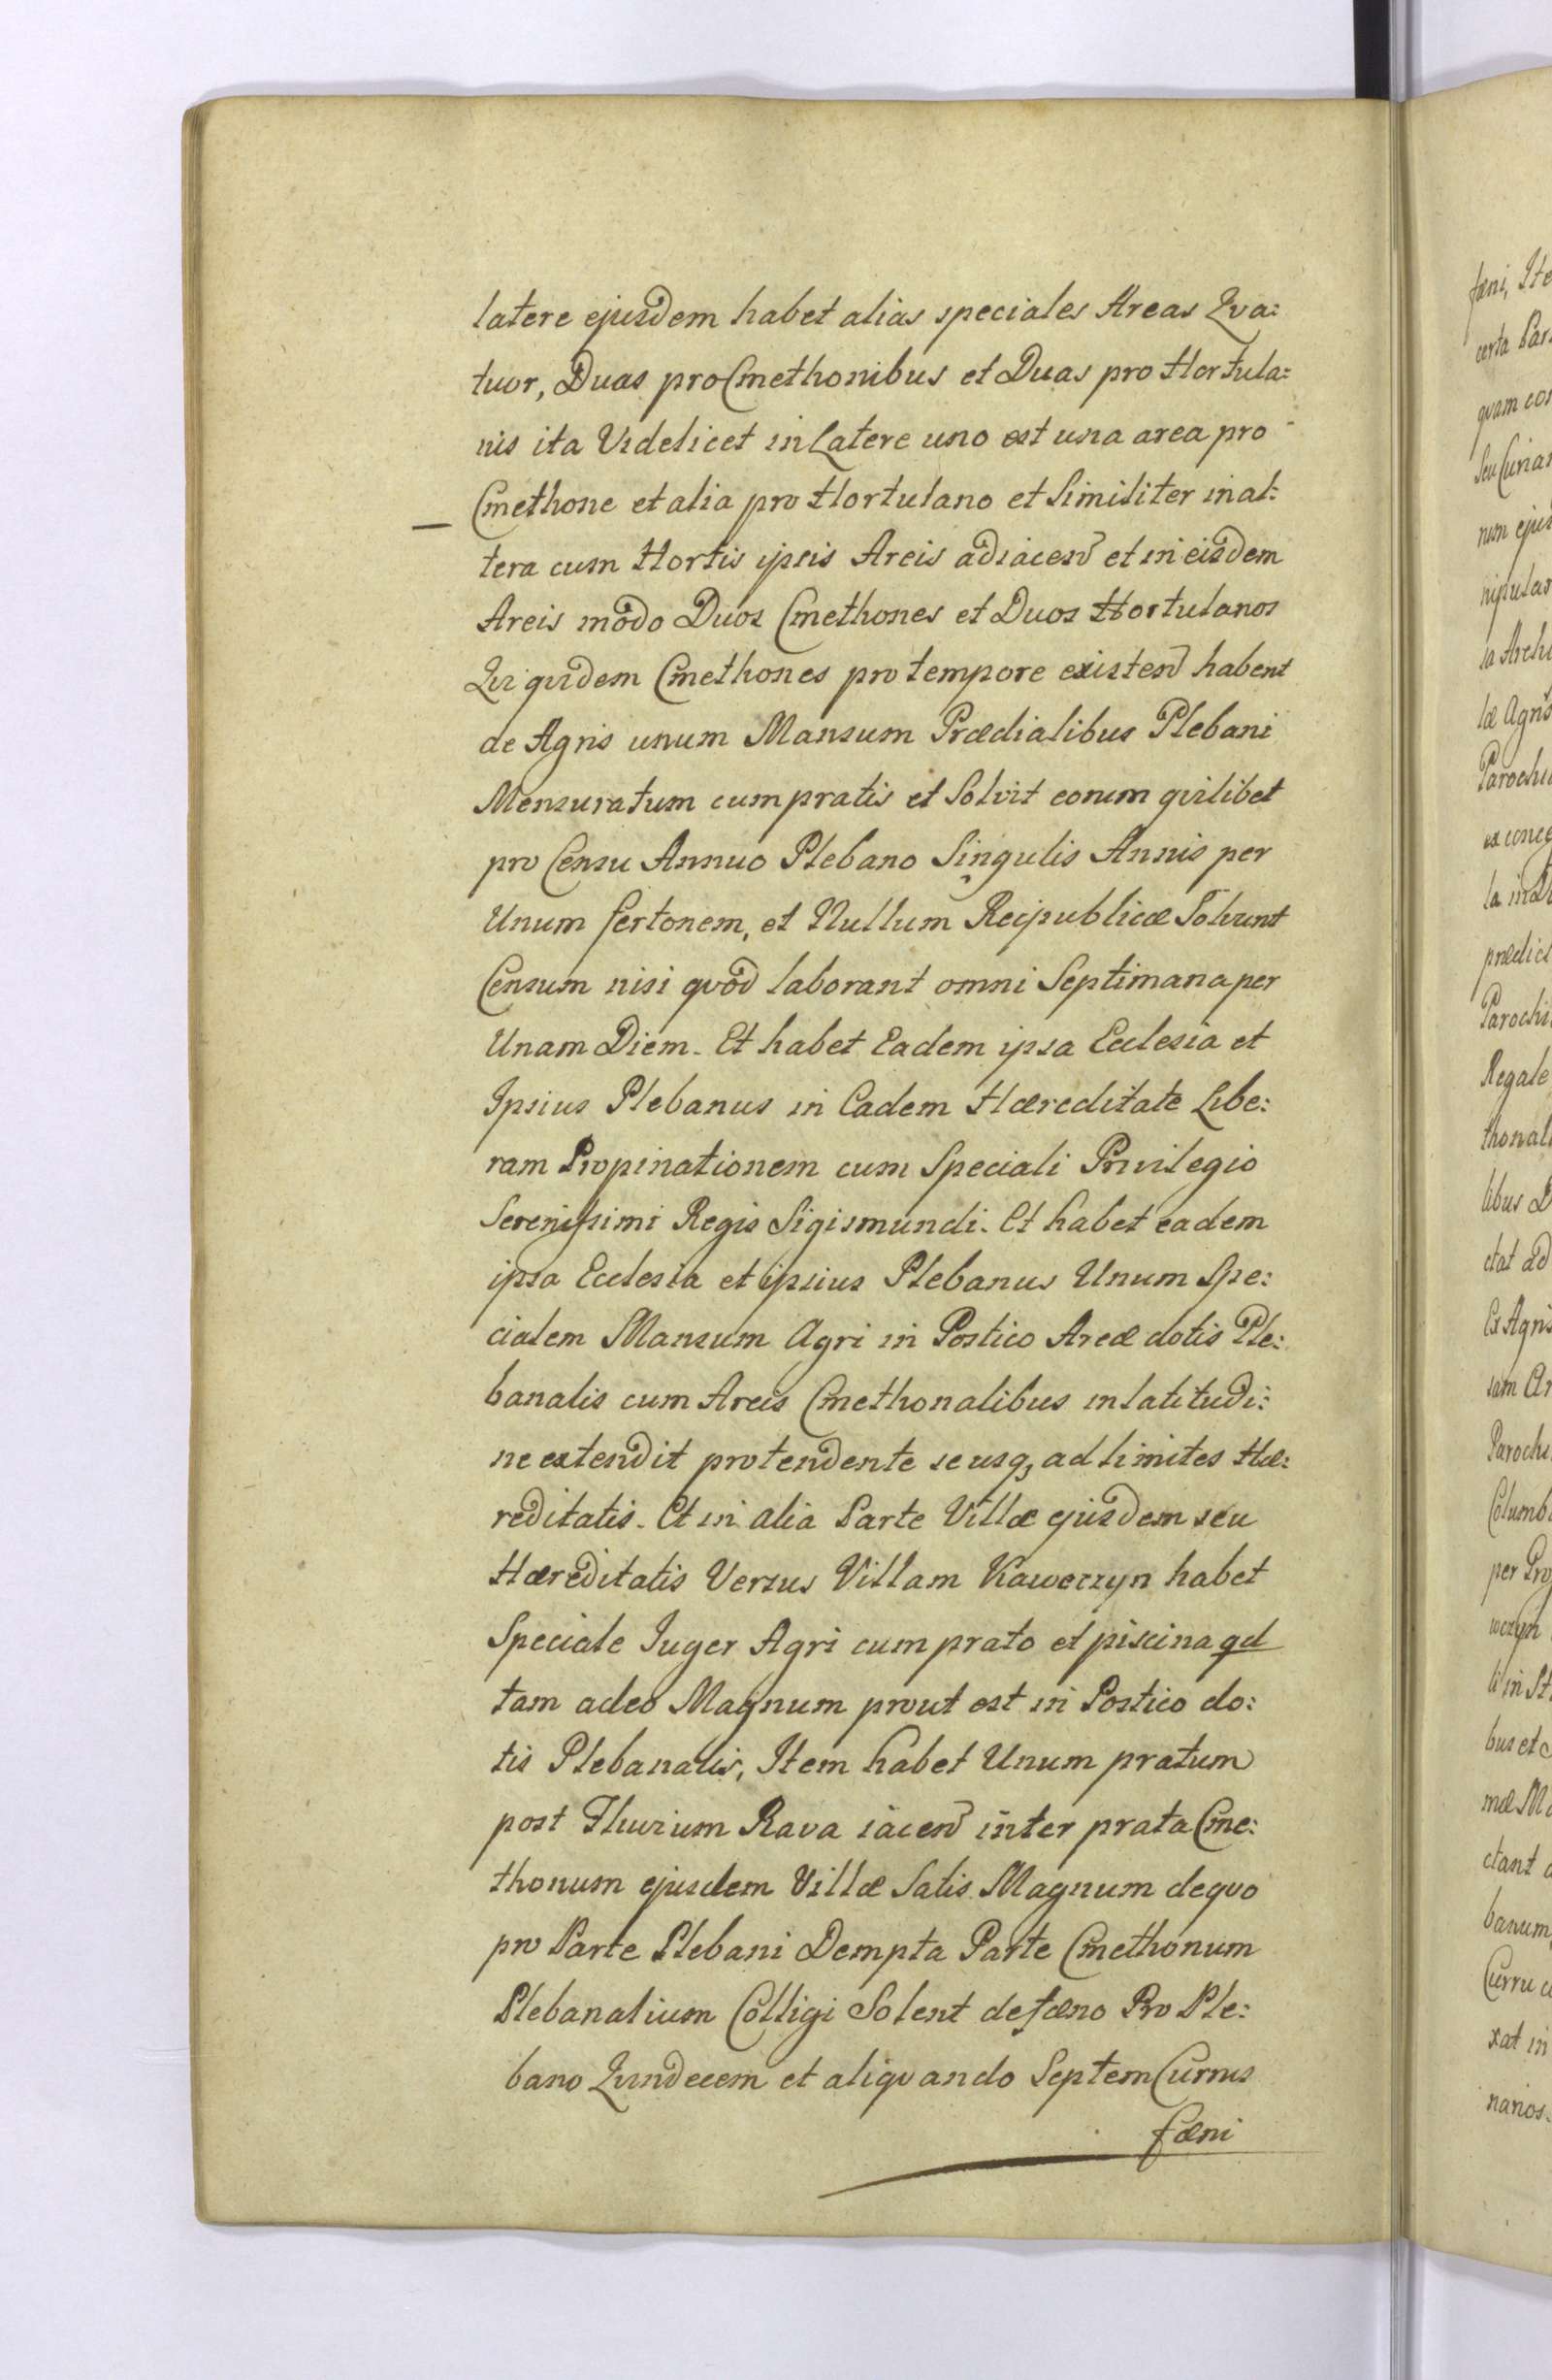 latere ejusdem habet alias speciales Areas Qva:
tuor, Duas pro Cmethonibus et Duas pro Hortula:
nis ita Videlicet in Latere uno est una area pro
Cmethone et alia pro Hortulano et Similiter in al:
tera cum Hortis ipsis Areis adiacen̄ et in eisdem
Areis modo Duos Cmethones et Duos Hortulanos
Qvi qvidem Cmethones pro tempore existen̄ habent
de Agris unum Mansum Prædialibus Plebani
Mensuratum cum pratis et Solvit eorum qvilibet
pro Censu Annuo Plebano Singulis Annis per
Unum fertonem, et Nullum Reipublicæ Solvunt
Censum nisi qvod laborant omni Septimana per
Unam Diem. Et habet Eadem ipsa Ecclesia et
Ipsius Plebanus in Eadem Hæreditate Libe:
ram Propinationem cum Speciali Privilegio
Serenissimi Regis Sigismundi. Et habet eadem
ipsa Ecclesia et ipsius Plebanus Unum Spe:
cialem Mansum Agri in Postico Areæ dotis Ple:
banalis cum Areis Cmethonalibus in latitudi:
ne extendit protendente se usq, ad limites Hæ:
reditatis. Et in alia Parte Villæ ejusdem seu
Hæreditatis Versus Villam Kaweczyn habet
Speciale Juger Agri cum prato et piscina qd
tam adeo Magnum prout est in Postico do:
tis Plebanalis, Item habet Unum pratum
post Fluvium Rava iacen̄ inter prata Cme:
thonum ejusdem Villæ Satis Magnum de qvo
pro Parte Plebani Dempta Parte Cmethonum
Plebanalium Colligi Solent de fæno Pro Ple:
bano Qvindecem et aliqvando Septem Currus
fæni
fæni, Ite
certa Par
qvam con
Seu Curia
num ejus
la Arch
læ Agris
Parochi
ex conce
la in
prædict
Parochi
Regale
thonal
libus D
ctat ad
Ex Agris
sam Ar
Parochi
Columb
per Pro
li in St
bus et
mæ Ma
ctant
banum
Curru
xat in
narios